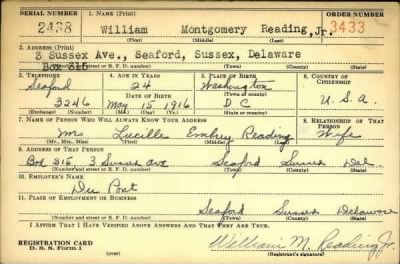 SERIAL NUMBER 1. NAME (Print) ORDER NUMBER
2438 William Montgomery Reading, Jr. 3433
(First) (Middle) (Last)
2. ADDRESS (Print)
3 Sussex Ave., Seaford, Sussex, Delaware
Box 315
(Number and street or R. F. D. number) (Town) (County) (State)
3. TELEPHONE 4. AGE IN YEARS 5. PLACE OF BIRTH 6. COUNTRY OF CITIZENSHIP
Seaford 24 Washington
DATE OF BIRTH (Town or county)
3246 May 15, 1916 D C U. S. A.
(Exchange) (Number) (Mo.) (Day) (Yr.) (State or country)
7. NAME OF PERSON WHO WILL ALWAYS KNOW YOUR ADDRESS 8. RELATIONSHIP OF THAT PERSON
Mrs Lucille Embrey Reading Wife
(Mr., Mrs., Miss) (First) (Middle) (Last)
9. ADDRESS OF THAT PERSON
Box 315, 3 Sussex Ave Seaford Sussex Del
(Number and street or R. F. D. number) (Town) (County) (State)
10. EMPLOYER'S NAME
Du Pont
11. PLACE OF EMPLOYMENT OR BUSINESS
Seaford Sussex Delaware
(Number and street or R. F. D. number) (Town) (County) (State)
I AFFIRM THAT I HAVE VERIFIED ABOVE ANSWERS AND THAT THEY ARE TRUE.
REGISTRATION CARD
D. S. S. Form 1
William M. Reading Jr.
(over) (Registrant's signature)